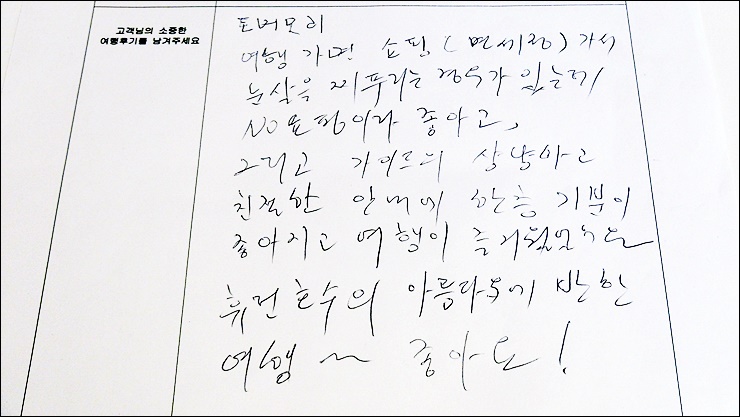 고객님의 소중한
여행후기를 남겨주세요
토버모리
여행 가면 쇼핑(면세점) 가서
눈살을 찌푸리는 경우가 있는데
NO쇼핑이라 좋아고,
그리고 가이드의 상냥하고
친절한 안내에 한층 기분이
좋아지고 여행이 즐거웠
휴런호수의 아름다움에 반한
여행~ 좋아요!